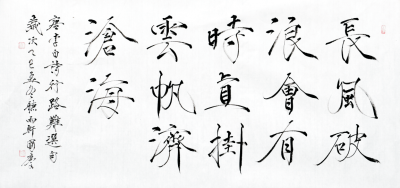 長風破
浪會有
時直掛
雲帆濟
滄海
唐李白詩行路難選句
歲次
聽雨軒